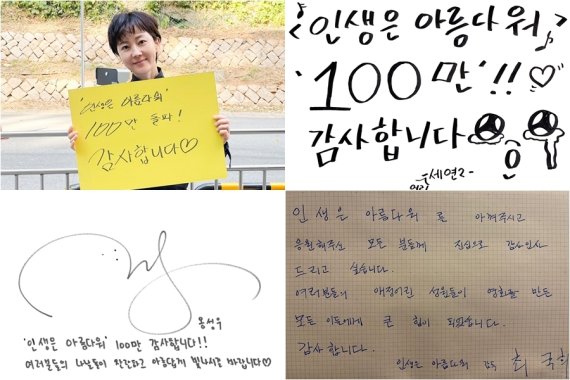 '인생은 아름다워'
100만 돌파!
감사합니다♡
'인생은 아름다워♪
100만'!!♡
감사합니다
-세연2-
옹성우
'인생은 아름다워' 100만 감사합니다!!
여러분들의 나날들이 찬란하고 아름답게 빛나시길 바랍니다♡
인생은 아름다워 를 아껴주시고
응원해주신 모든 분들께 진심으로 감사인사
드리고 싶습니다.
여러분들의 애정어린 성원들이 영화를 만든
모든 이들에게 큰 힘이 되었습니다.
감사합니다.
인생은 아름다워 감독 최 국희